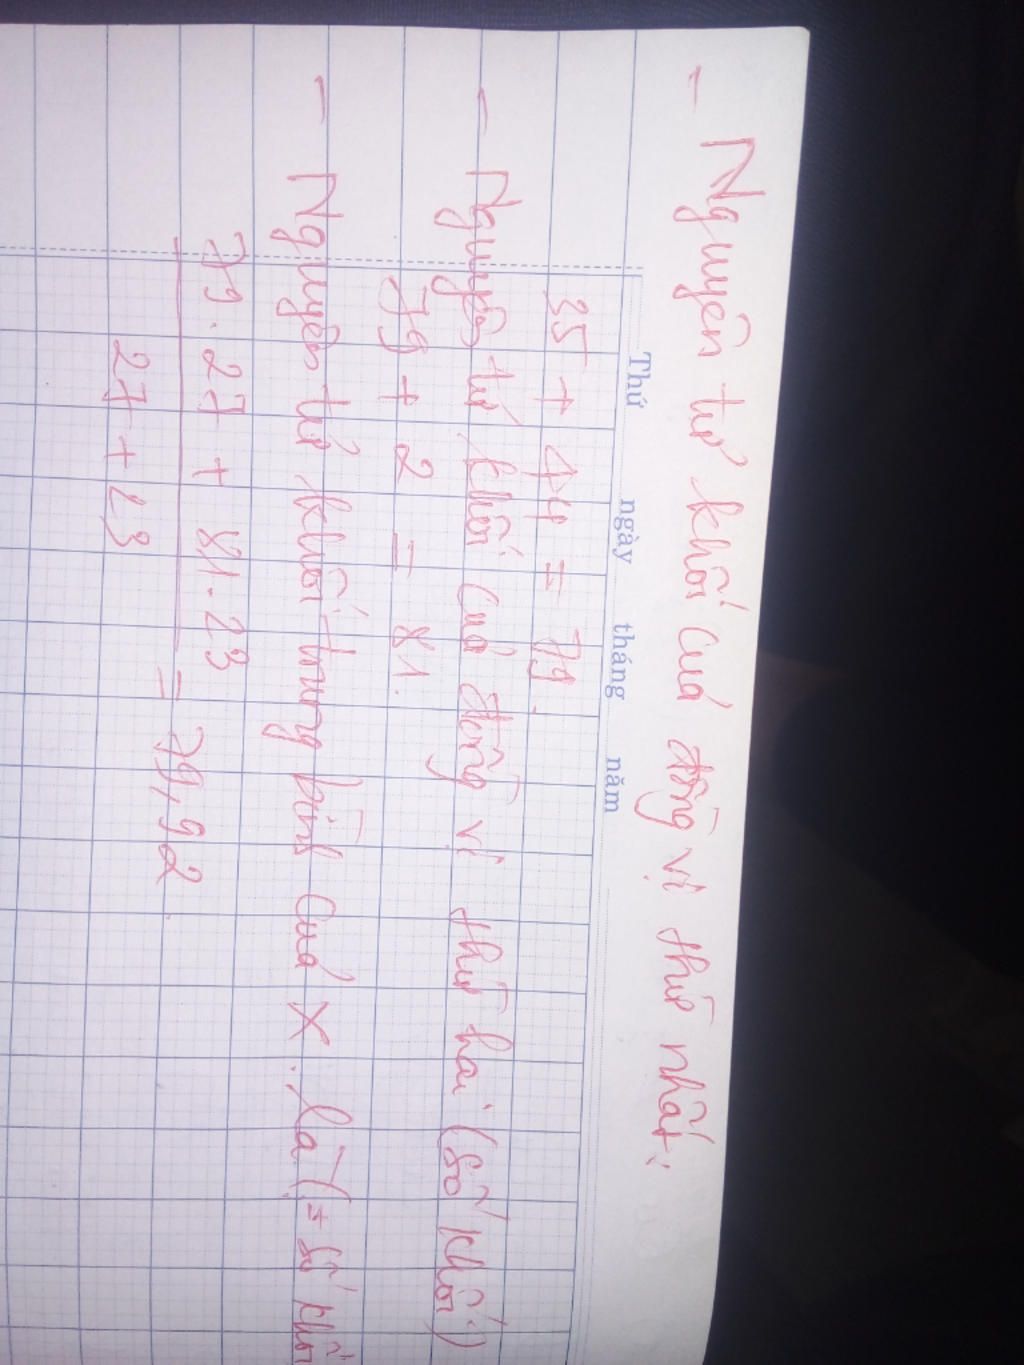 - Nguyên tử khối của đồng vị thứ nhất:
Thứ ngày tháng năm
35 + 44 = 79.
- Nguyên tử khối của đồng vị thứ hai (số khối)
79 + 2 = 81.
- Nguyên tử khối trung bình của X là (= số khối
79.27 + 81.23
27 + 23
= 79,92.